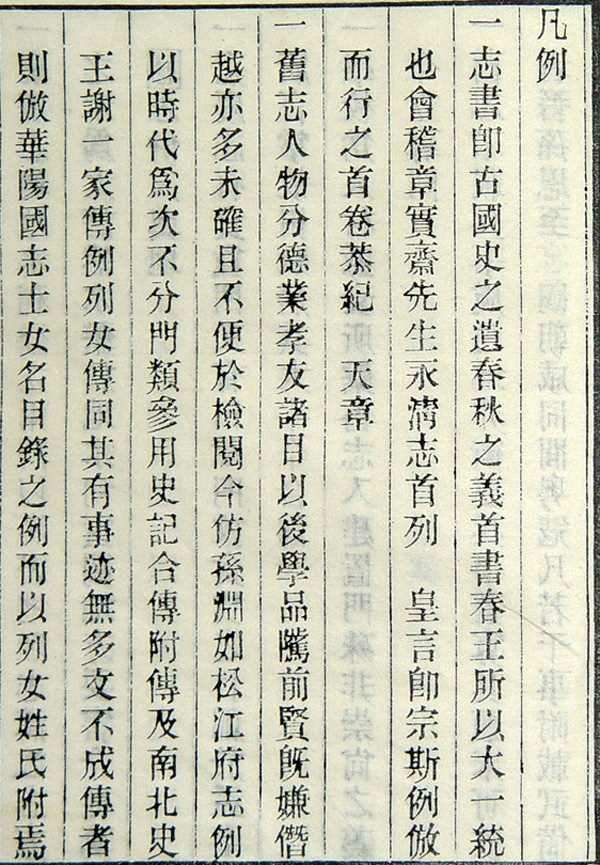 凡例
一志書卽古國史之遺春秋之義首書春王所以大一統
也會稽章實齋先生永淸志首列　皇言卽宗斯例倣
而行之首卷恭紀　天章
一舊志人物分德業孝友諸目以後學品騭前賢旣嫌僭
越亦多未確且不便於檢閱今仿孫淵如松江府志例
以時代爲次不分門類參用史記合傳附傳及南北史
王謝一家傳例列女傳同其有事迹無多文不成傳者
則倣華陽國志士女名目錄之例而以列女姓氏附焉